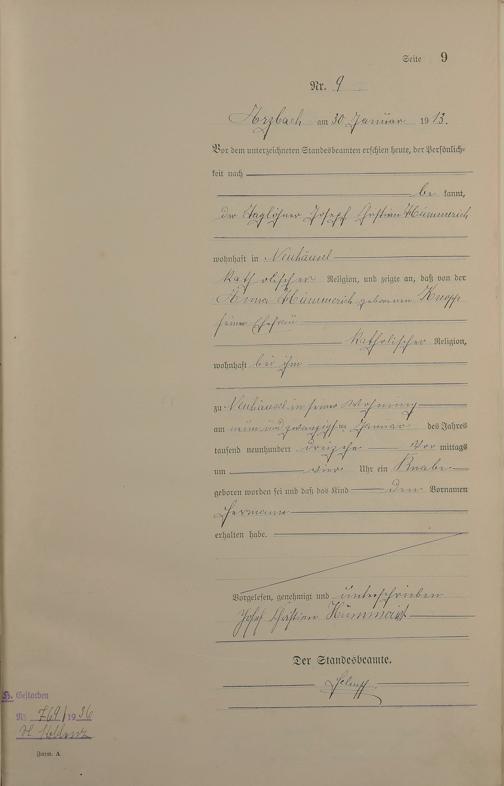 Seite 9
Nr. 9
Arzbach am 30 Januar 1913.
Vor dem unterzeichneten Standesbeamten erschien heute, der Persönlich-
keit nach
be kannt,
der Taglöhner Josef Christian Hümmerich
wohnhaft in Neuhäusel
katholischer Religion, und zeigte an, daß von der
Anna Hümmerich geborenen Knopp
seiner Ehefrau
katholischer Religion,
wohnhaft bei ihm
zu Neuhäusel in seiner Wohnung
am neunundzwanzigsten Januar des Jahres
tausend neunhundert dreizehn Vor mittags
um vier Uhr ein Knabe
geboren worden sei und daß das Kind den Vornamen
Hermann
erhalten habe.
Vorgelesen, genehmigt und unterschrieben
Josef Christian Hümmerich
Der Standesbeamte.
H. Gestorben
Nr. 769/1936
Koblenz
Form. A